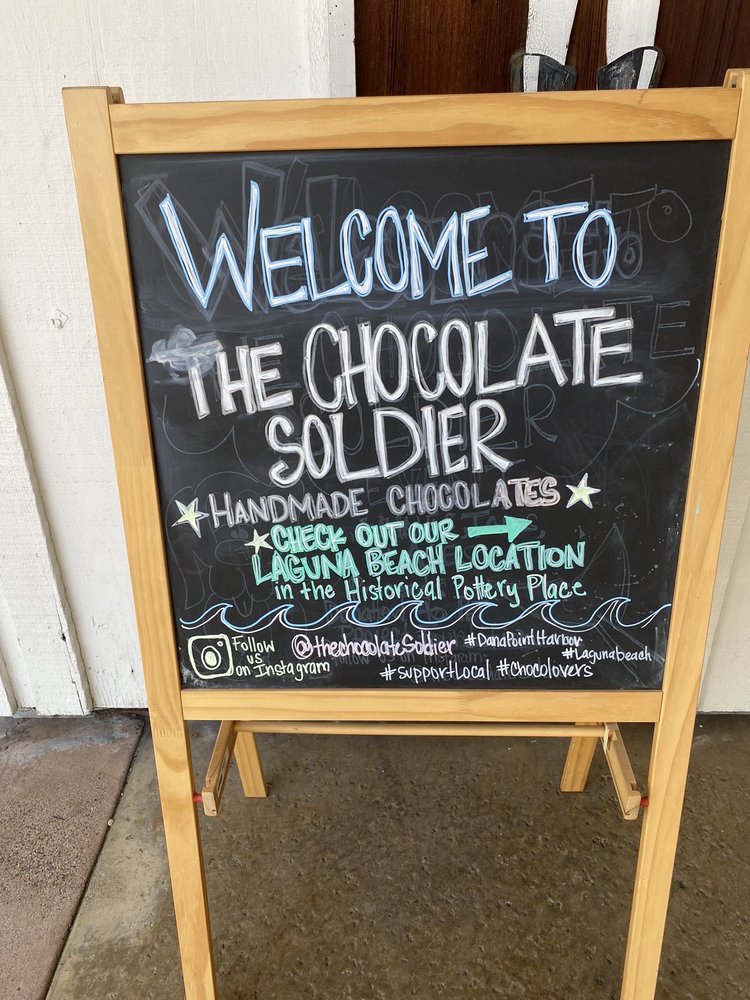 WELCOME TO
THE CHOCOLATE
SOLDIER
HANDMADE CHOCOLATES
CHECK OUT OUR
LAGUNA BEACH LOCATION
in the Historical Pottery Place
Follow us on Instagram
@thechocolateSoldier #DanaPointHarbor
#Lagunabeach
#supportLocal #chocolovers